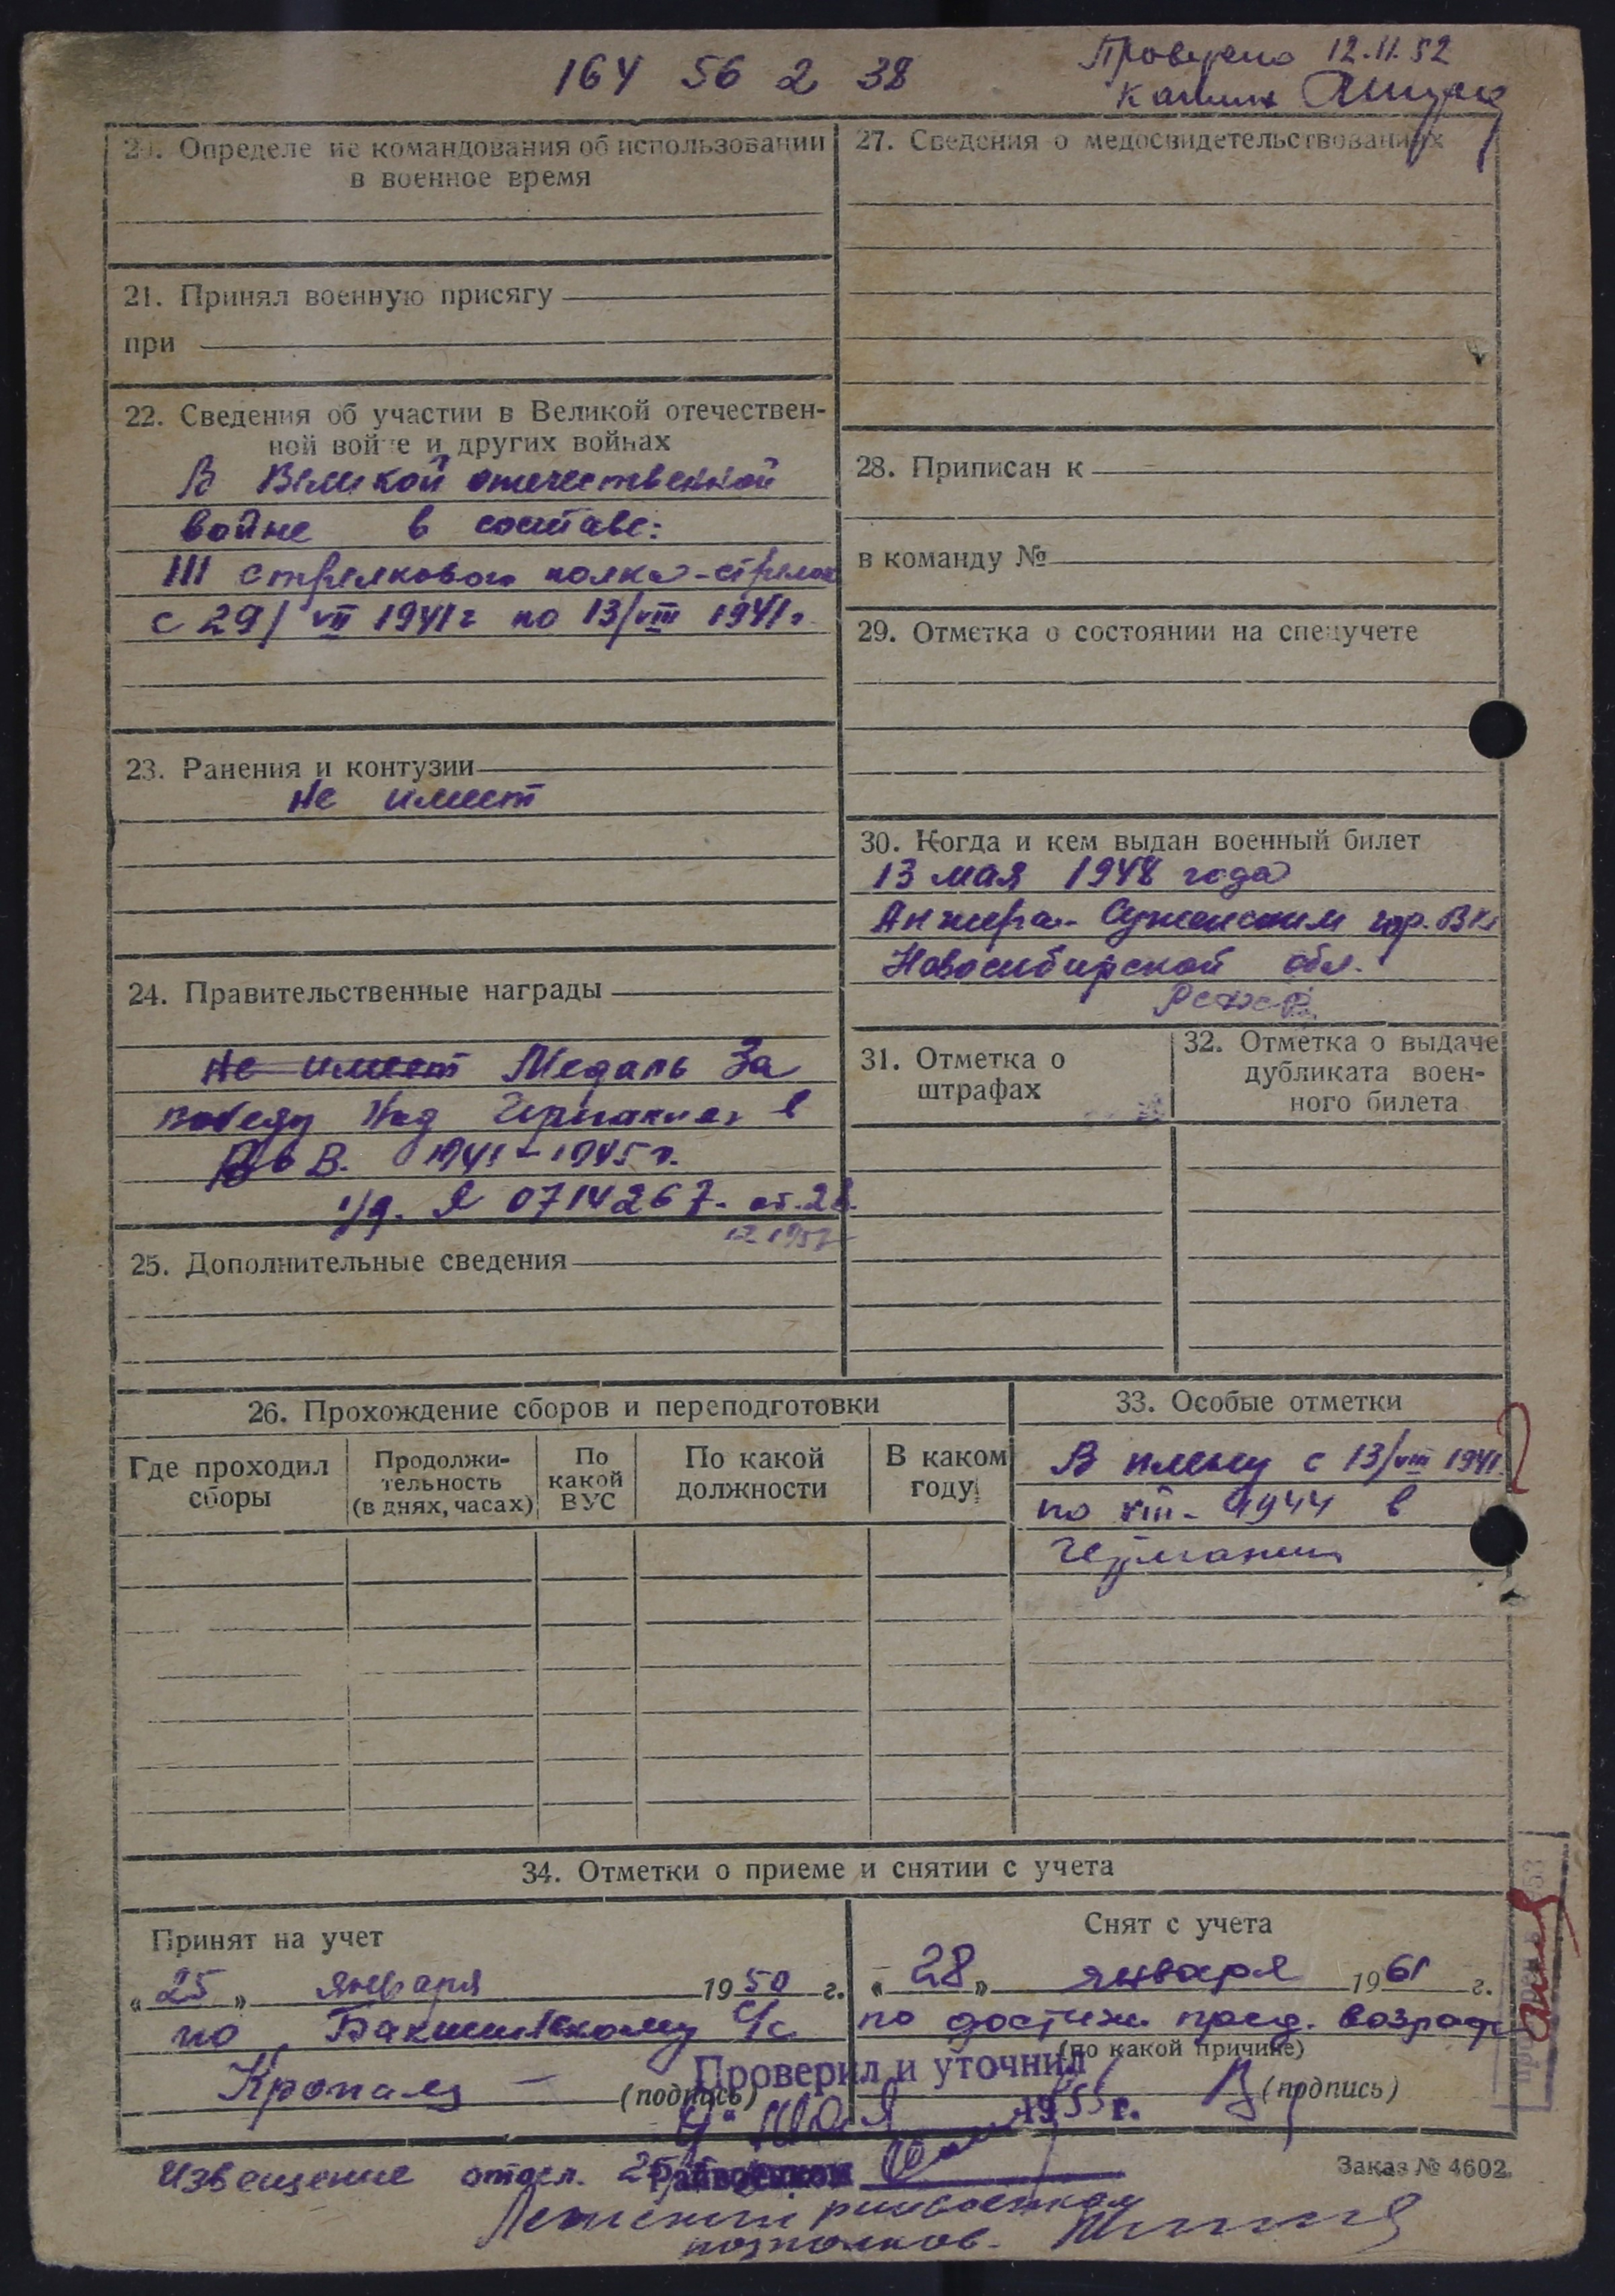 164 56 2 38
Проверено 12.11.52
20. Определе ие командования об использовании
в военное время
21. Принял военную присягу
при
22. Сведения об участии в Великой отечествен-
ной вой е и других войнах
В Великой отечественной
войне в составе:
111 стрелкового полка - стрелок
с 29/VII 1941 г по 13/VIII 1941 г.
23. Ранения и контузии
Не имеет
24. Правительственные награды
Не имеет Медаль За
победу над Германией в
В. 1941-1945 г.
У/д. Я 0714267. от. 28.
12 1957
25. Дополнительные сведения
27. Сведения о медосвидетельствованиях
28. Приписан к
в команду №
29. Отметка о состоянии на спецучете
30. Когда и кем выдан военный билет
13 мая 1948 года
Анжеро-Судженским гор. ВК
Новосибирской обл.
РСФСР
31. Отметка о
штрафах
32. Отметка о выдаче
дубликата воен-
ного билета
26. Прохождение сборов и переподготовки
Где проходил
сборы
Продолжи-
тельность
(в днях, часах)
По
какой
ВУС
По какой
должности
В каком
году
33. Особые отметки
В плену с 13/VIII 1941
по VIII - 1944 в
Германии
34. Отметки о приеме и снятии с учета
Принят на учет
„25„ января 1950 г.
по с/с
(подпись)
Снят с учета
„28„ января 1961 г.
по достиж. пред. возраст
(по какой причине)
(подпись)
Проверил и уточнил
1955 г.
Райвоенком
Извещение отосл.
райвоенком
подполков.
Заказ № 4602.